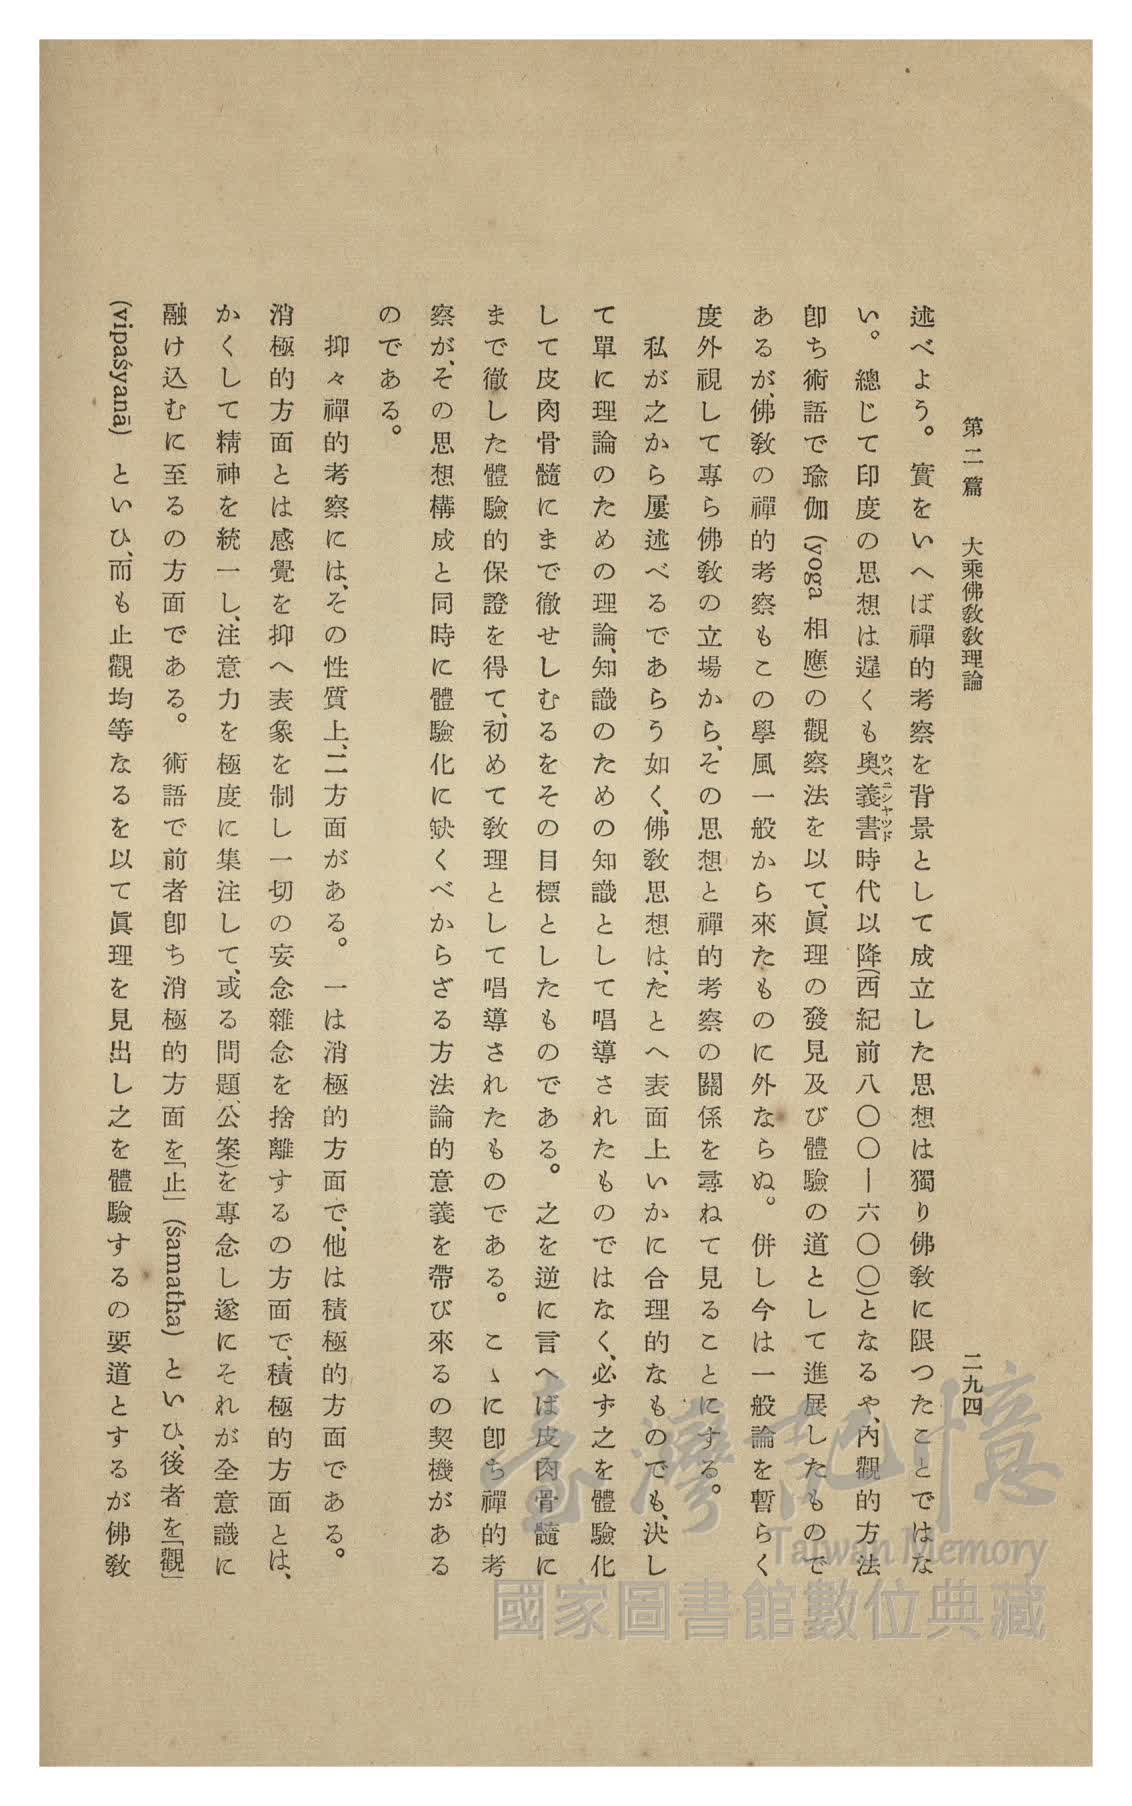 第二篇　大乘佛敎敎理論
二九四
述べよう。實をいへば禪的考察を背景として成立した思想は獨り佛敎に限つたことではな
い。總じて印度の思想は遲くも奧義書時代以降(西紀前八〇〇—六〇〇)となるや、內觀的方法
ウパニシヤッド
卽ち術語で瑜伽 (yoga 相應)の觀察法を以て、眞理の發見及び體驗の道として進展したもので
あるが、佛敎の禪的考察もこの學風一般から來たものに外ならぬ。併し今は一般論を暫らく
度外視して專ら佛敎の立場から、その思想と禪的考察の關係を尋ねて見ることにする。
私が之から屢述べるであらう如く、佛敎思想は、たとへ表面上いかに合理的なものでも、決し
て單に理論のための理論、知識のための知識として唱導されたものではなく、必ず之を體驗化
して皮肉骨髓にまで徹せしむるをその目標としたものである。之を逆に言へば皮肉骨髓に
まで徹した體驗的保證を得て、初めて敎理として唱導されたものである。こゝに卽ち禪的考
察が、その思想構成と同時に體驗化に缺くべからざる方法論的意義を帶び來るの契機がある
のである。
抑々禪的考察には、その性質上、二方面がある。一は消極的方面で、他は積極的方面である。
消極的方面とは感覺を抑へ表象を制し一切の妄念雜念を捨離するの方面で、積極的方面とは、
かくして精神を統一し、注意力を極度に集注して、或る問題、公案)を專念し遂にそれが全意識に
融け込むに至るの方面である。術語で前者卽ち消極的方面を「止」 (śamatha) といひ、後者を「觀」
(vipaśyanā) といひ、而も止觀均等なるを以て眞理を見出し之を體驗するの要道とするが佛敎
臺灣記憶
Taiwan Memory
國家圖書館數位典藏